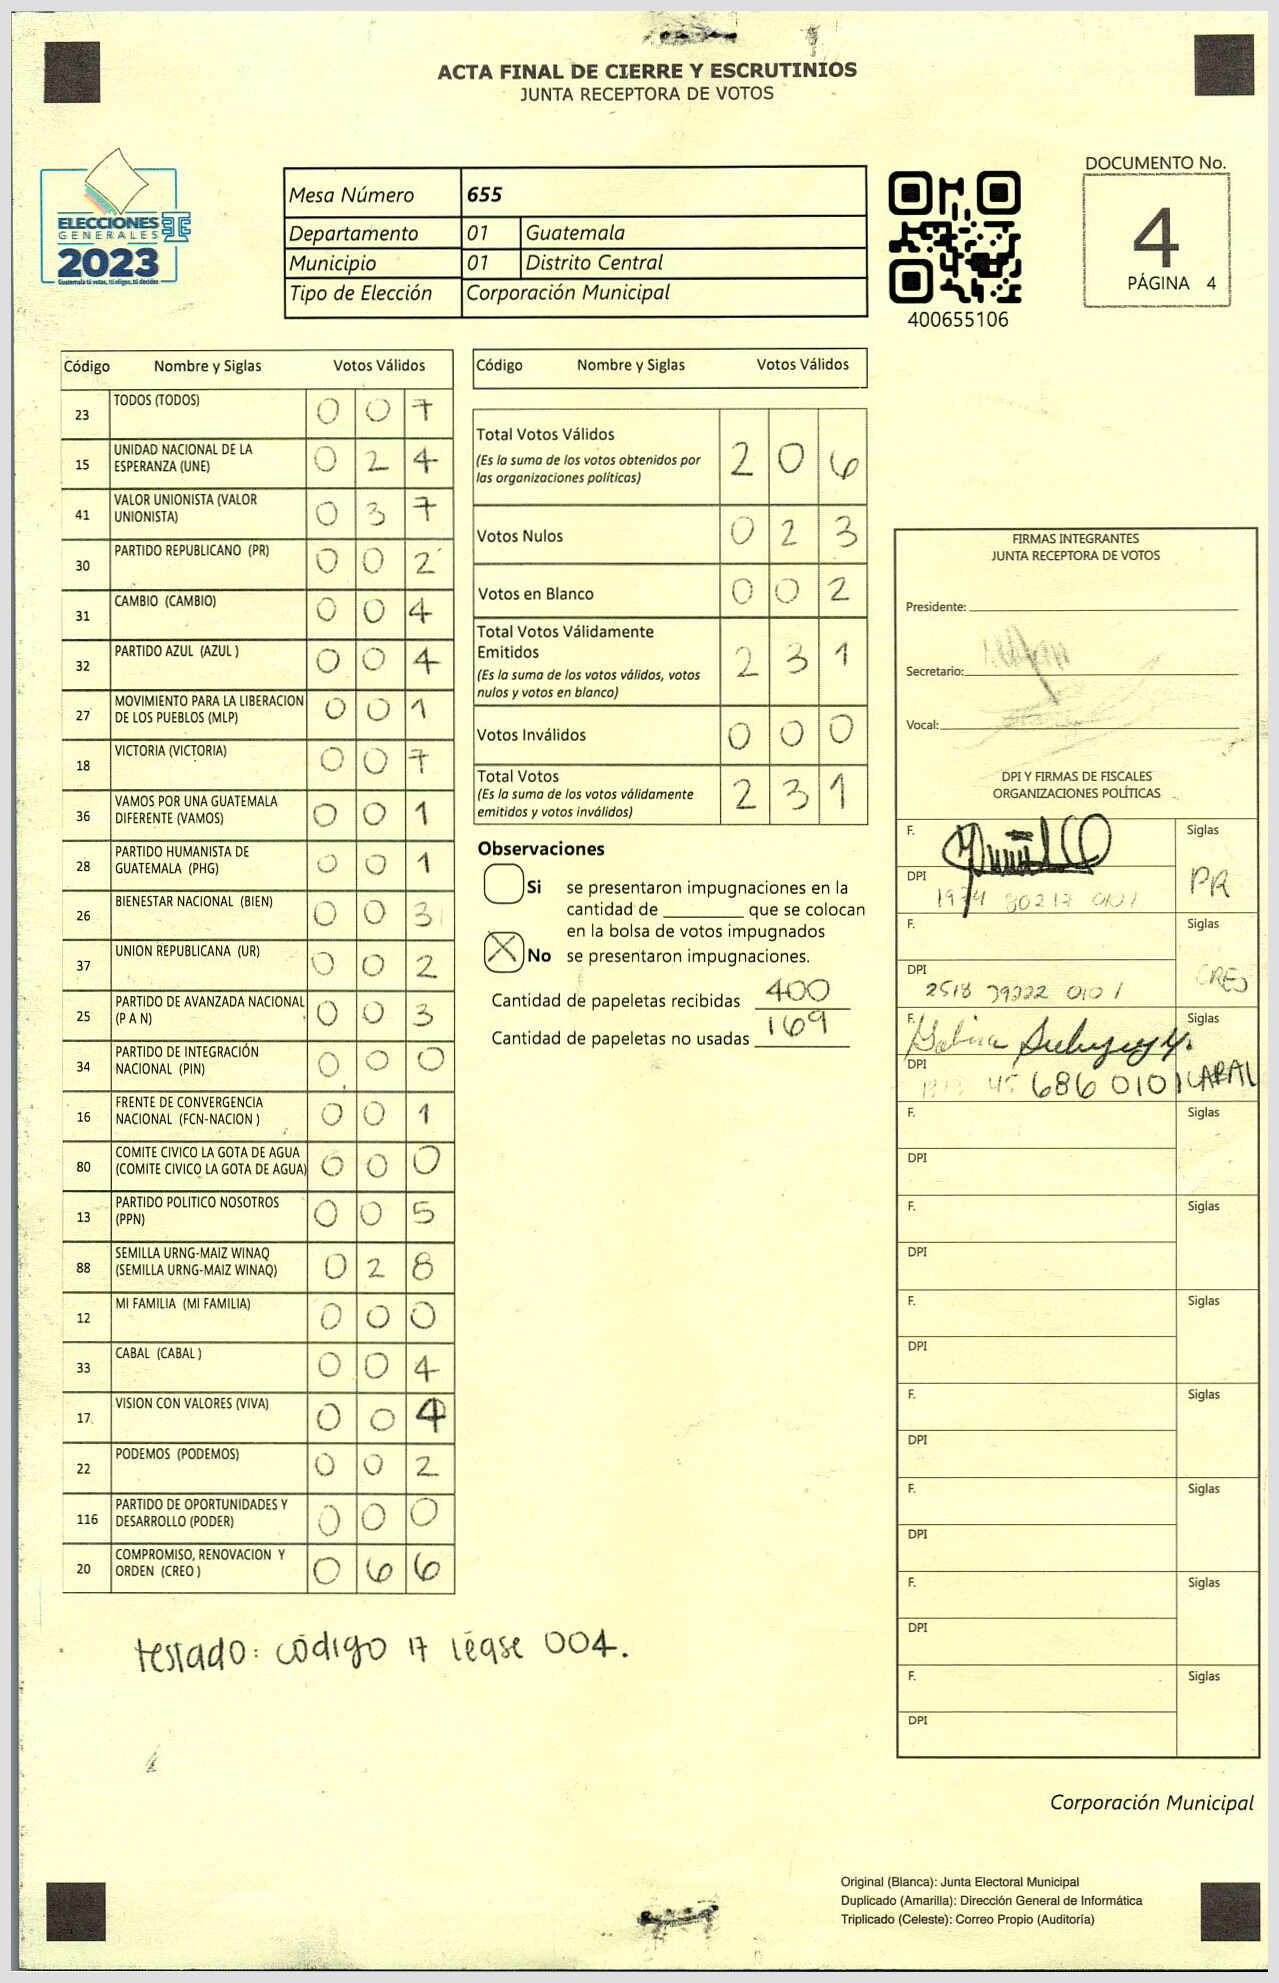 ACTA FINAL DE CIERRE Y ESCRUTINIOS
JUNTA RECEPTORA DE VOTOS
ELECCIONES
GENERALES
2023
Guatemala tú votas, tú eliges, tú decides
Mesa Número 655
Departamento 01 Guatemala
Municipio 01 Distrito Central
Tipo de Elección Corporación Municipal
400655106
DOCUMENTO No.
4
PÁGINA 4
Código Nombre y Siglas Votos Válidos
23 TODOS (TODOS) 0 0 7
15 UNIDAD NACIONAL DE LA
ESPERANZA (UNE) 0 2 4
41 VALOR UNIONISTA (VALOR
UNIONISTA) 0 3 7
30 PARTIDO REPUBLICANO (PR) 0 0 2
31 CAMBIO (CAMBIO) 0 0 4
32 PARTIDO AZUL (AZUL ) 0 0 4
27 MOVIMIENTO PARA LA LIBERACION
DE LOS PUEBLOS (MLP) 0 0 1
18 VICTORIA (VICTORIA) 0 0 7
36 VAMOS POR UNA GUATEMALA
DIFERENTE (VAMOS) 0 0 1
28 PARTIDO HUMANISTA DE
GUATEMALA (PHG) 0 0 1
26 BIENESTAR NACIONAL (BIEN) 0 0 3
37 UNION REPUBLICANA (UR) 0 0 2
25 PARTIDO DE AVANZADA NACIONAL
(P A N) 0 0 3
34 PARTIDO DE INTEGRACIÓN
NACIONAL (PIN) 0 0 0
16 FRENTE DE CONVERGENCIA
NACIONAL (FCN-NACION ) 0 0 1
80 COMITE CIVICO LA GOTA DE AGUA
(COMITE CIVICO LA GOTA DE AGUA) 0 0 0
13 PARTIDO POLITICO NOSOTROS
(PPN) 0 0 5
88 SEMILLA URNG-MAIZ WINAQ
(SEMILLA URNG-MAIZ WINAQ) 0 2 8
12 MI FAMILIA (MI FAMILIA) 0 0 0
33 CABAL (CABAL ) 0 0 4
17 VISION CON VALORES (VIVA) 0 0 4
22 PODEMOS (PODEMOS) 0 0 2
116 PARTIDO DE OPORTUNIDADES Y
DESARROLLO (PODER) 0 0 0
20 COMPROMISO, RENOVACION Y
ORDEN (CREO ) 0 6 6
testado: código 17 léase 004.
Código Nombre y Siglas Votos Válidos
Total Votos Válidos 2 0 6
(Es la suma de los votos obtenidos por
las organizaciones políticas)
Votos Nulos 0 2 3
Votos en Blanco 0 0 2
Total Votos Válidamente
Emitidos 2 3 1
(Es la suma de los votos válidos, votos
nulos y votos en blanco)
Votos Inválidos 0 0 0
Total Votos 2 3 1
(Es la suma de los votos válidamente
emitidos y votos inválidos)
Observaciones
Si se presentaron impugnaciones en la
cantidad de ________ que se colocan
en la bolsa de votos impugnados
No se presentaron impugnaciones.
Cantidad de papeletas recibidas 400
Cantidad de papeletas no usadas 169
FIRMAS INTEGRANTES
JUNTA RECEPTORA DE VOTOS
Presidente:
Secretario:
Vocal:
DPI Y FIRMAS DE FISCALES
ORGANIZACIONES POLÍTICAS
F. Siglas
PR
DPI 1974 80217 0101
F. Siglas
DPI 2518 79222 0101
F. Siglas
DPI 45 686 0101
F. Siglas
DPI
F. Siglas
DPI
F. Siglas
DPI
F. Siglas
DPI
F. Siglas
DPI
F. Siglas
DPI
F. Siglas
DPI
Corporación Municipal
Original (Blanca): Junta Electoral Municipal
Duplicado (Amarilla): Dirección General de Informática
Triplicado (Celeste): Correo Propio (Auditoría)